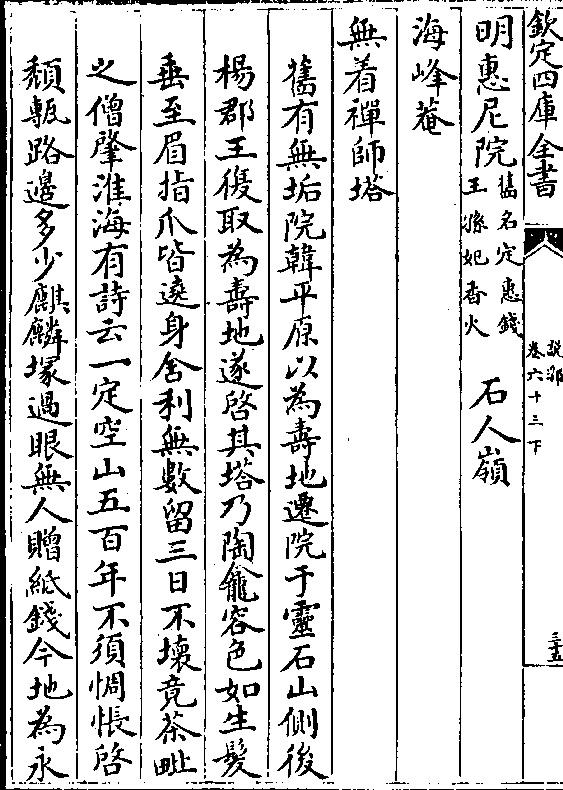 欽定四庫全書
說郛
卷六十三下
三十五
明惠尼院 舊名定惠錢
王孫妃香火
石人嶺
海峰菴
無着禪師塔
舊有無垢院韓平原以為壽地遷院于靈石山側後
楊郡王復取為壽地遂啓其塔乃陶龕容色如生髮
垂至眉指爪皆遶身舍利無數留三日不壞竟茶毗
之僧肇淮海有詩云一定空山五百年不須惆悵啓
頹甎路邉多少麒麟塚過眼無人贈紙錢今地為永